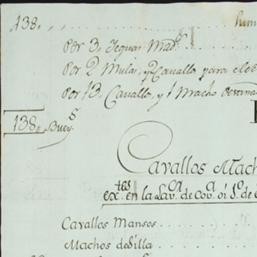 438.
Por 3,, Yeguas Mad.s
Por 2 Mulas, y 2 Cavallos para el
Por 13 Cavallos, y 1 Macho
138,, Buey.s
Cavallos Mach
ext.tes en la Lav.a de Cov.a oi
Cavallos Mansos
Machos de silla